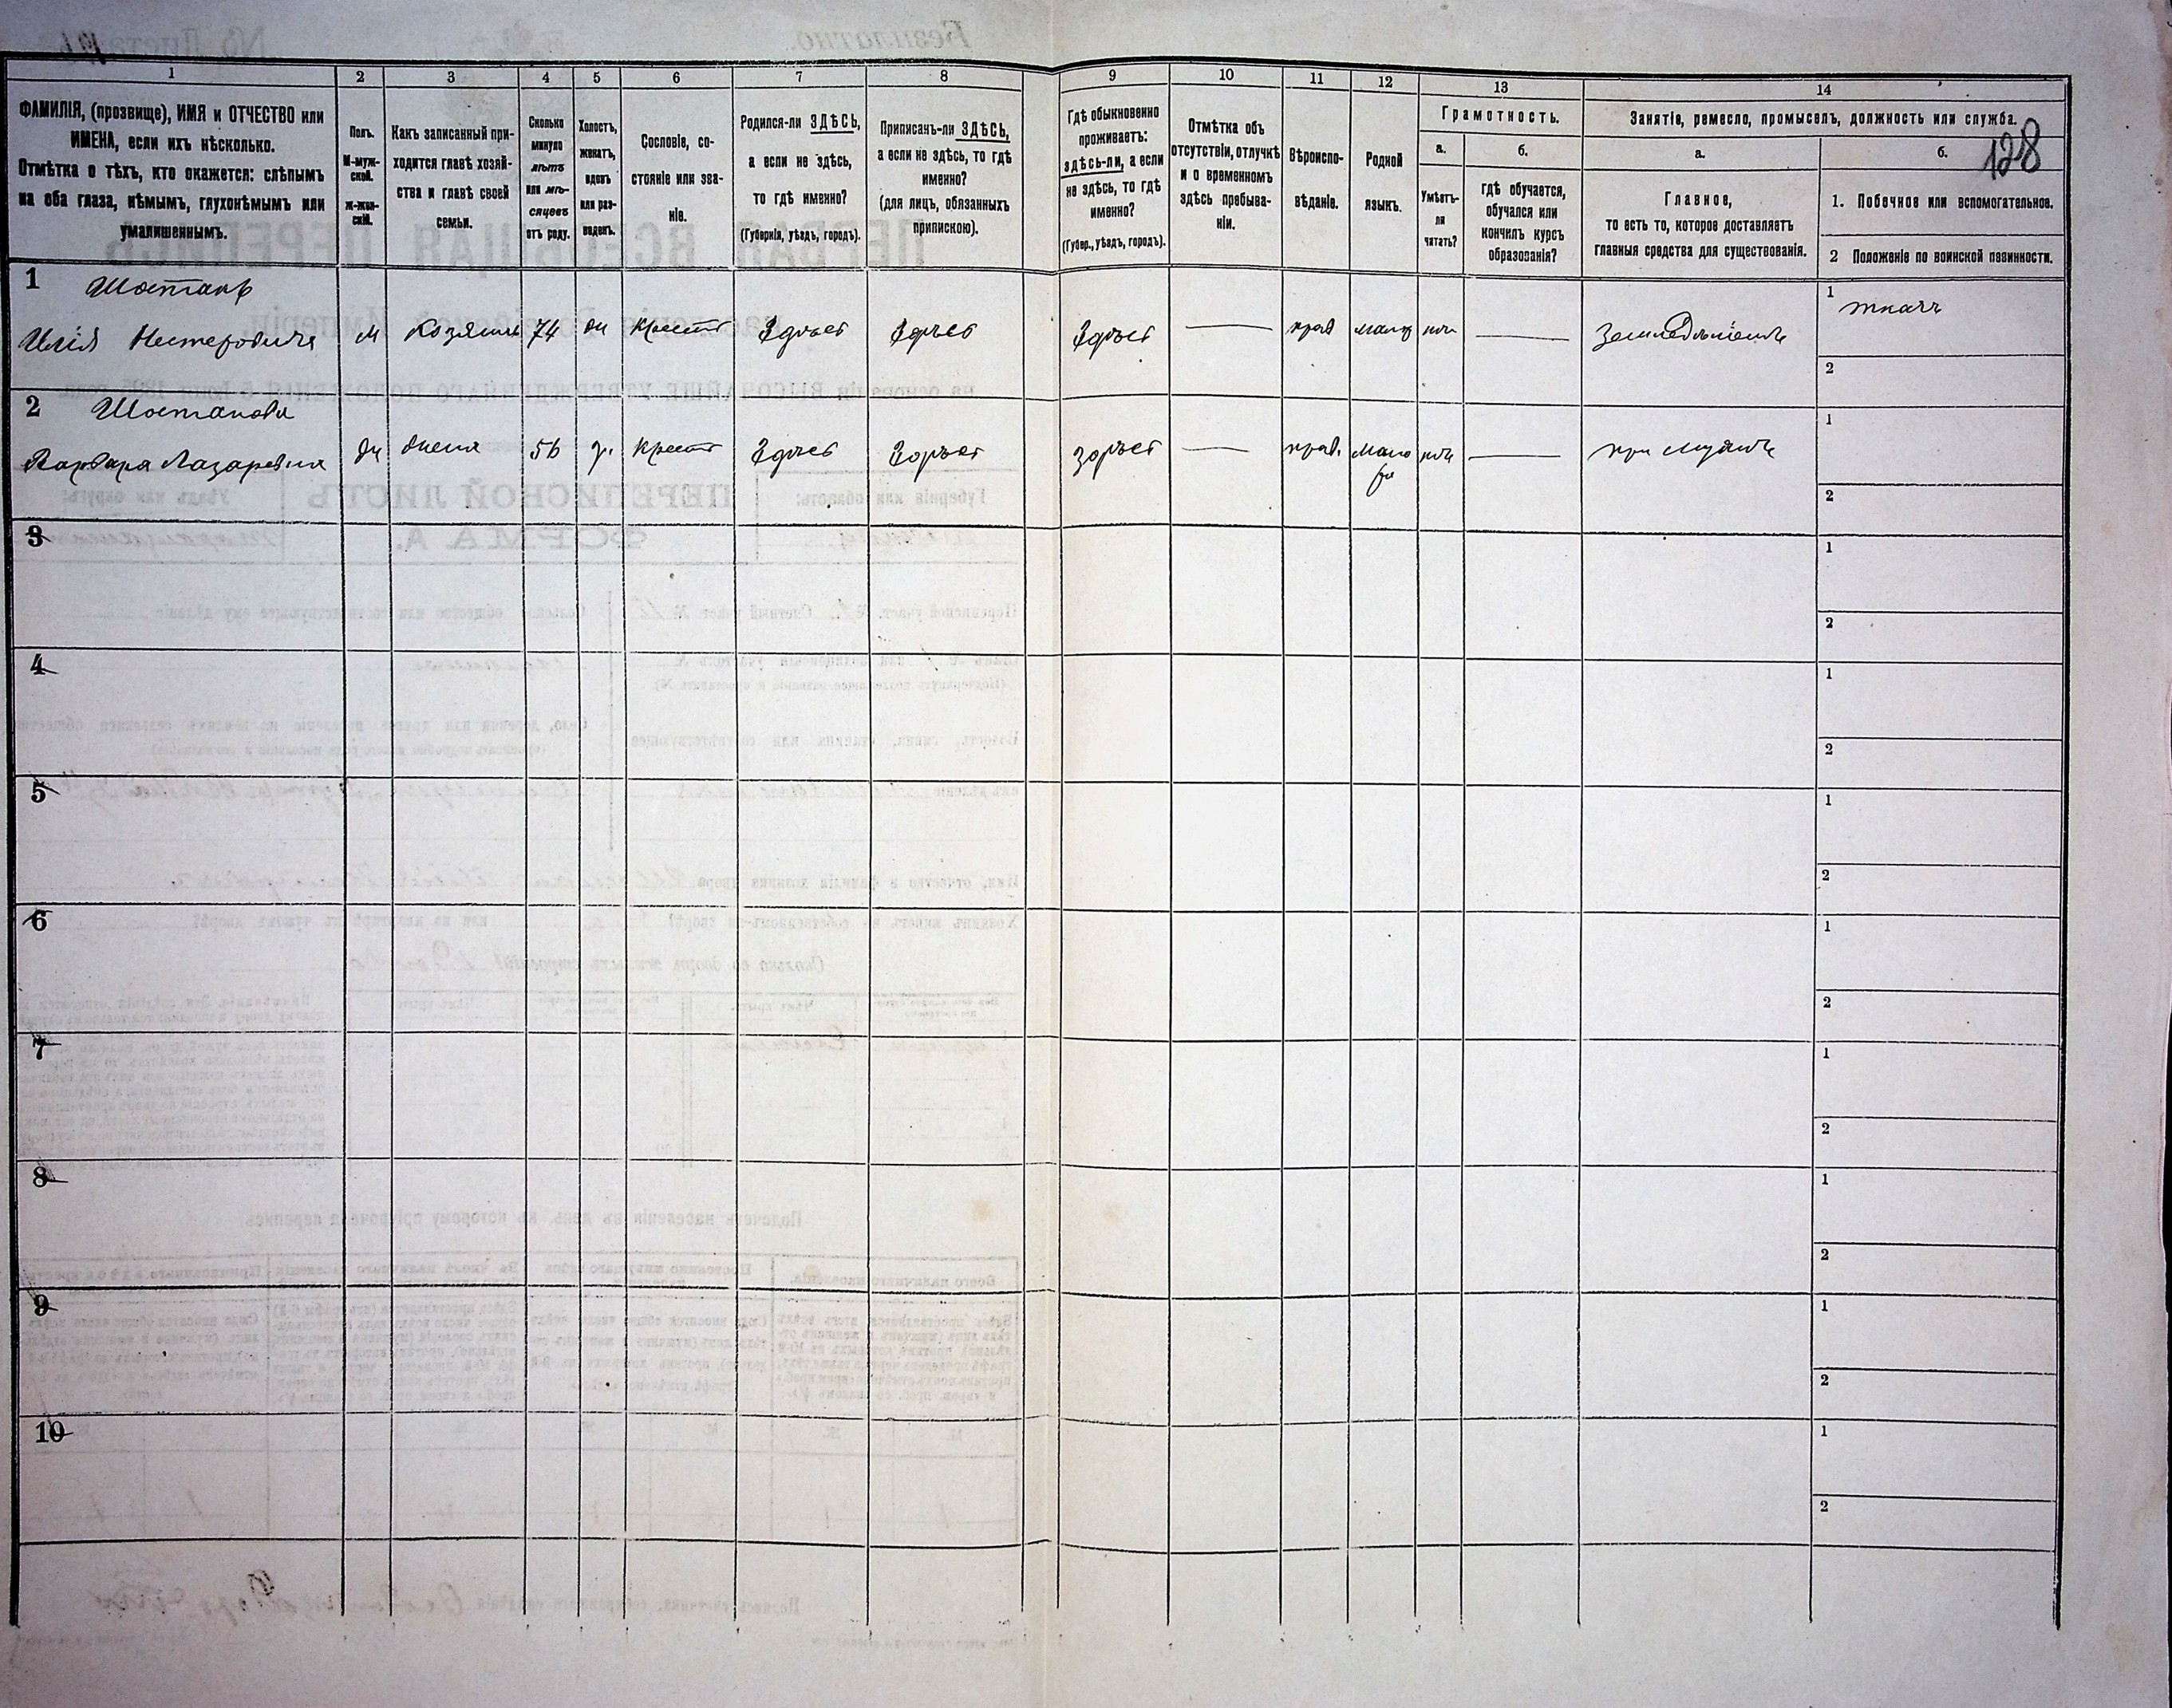 128
1 2 3 4 5 6 7 8 9 10 11 12 13 14
ФАМИЛІЯ, (прозвище), ИМЯ и ОТЧЕСТВО или
ИМЕНА, если ихъ нѣсколько.
Отмѣтка о тѣхъ, кто окажется: слѣпымъ
на оба глаза, нѣмымъ, глухонѣмымъ или
умалишеннымъ.
Полъ.
М-муж-
ской.
ж-жен-
скій.
Какъ записанный при-
ходится главѣ хозяй-
ства и главѣ своей
семьи.
Сколько
минуло
лѣтъ
или мѣ-
сяцевъ
отъ роду.
Холостъ,
женатъ,
вдовъ
или раз-
веденъ.
Сословіе, со-
стояніе или зва-
ніе.
Родился-ли ЗДѢСЬ,
а если не здѣсь,
то гдѣ именно?
(Губернія, уѣздъ, городъ).
Приписанъ-ли ЗДѢСЬ,
а если не здѣсь, то гдѣ
именно?
(для лицъ, обязанныхъ
припискою).
Гдѣ обыкновенно
проживаетъ:
здѣсь-ли, а если
не здѣсь, то гдѣ
именно?
(Губер., уѣздъ, городъ).
Отмѣтка объ
отсутствіи, отлучкѣ
и о временномъ
здѣсь пребыва-
ніи.
Вѣроиспо-
вѣданіе.
Родной
языкъ.
Грамотность.
а.
Умѣетъ-
ли
читать?
б.
гдѣ обучается,
обучался или
кончилъ курсъ
образованія?
Занятіе, ремесло, промыселъ, должность или служба.
а.
Главное,
то есть то, которое доставляетъ
главныя средства для существованія.
б.
1. Побочное или вспомогательное.
2 Положеніе по воинской повинности.
1 Шостакъ
Илія Нестеровичъ м хозяинъ 74 жн крест Здѣсь Здѣсь Здѣсь — прав малор нѣт — Земледѣліемъ 1 ткачъ
2
2 Шостакова
Варвара Лазаревна ж жена 56 з. крест Здѣсь Здѣсь Здѣсь — прав. мало нѣт — при мужѣ 1
2
3 1
2
4 1
2
5 1
2
6 1
2
7 1
2
8 1
2
9 1
2
10 1
2